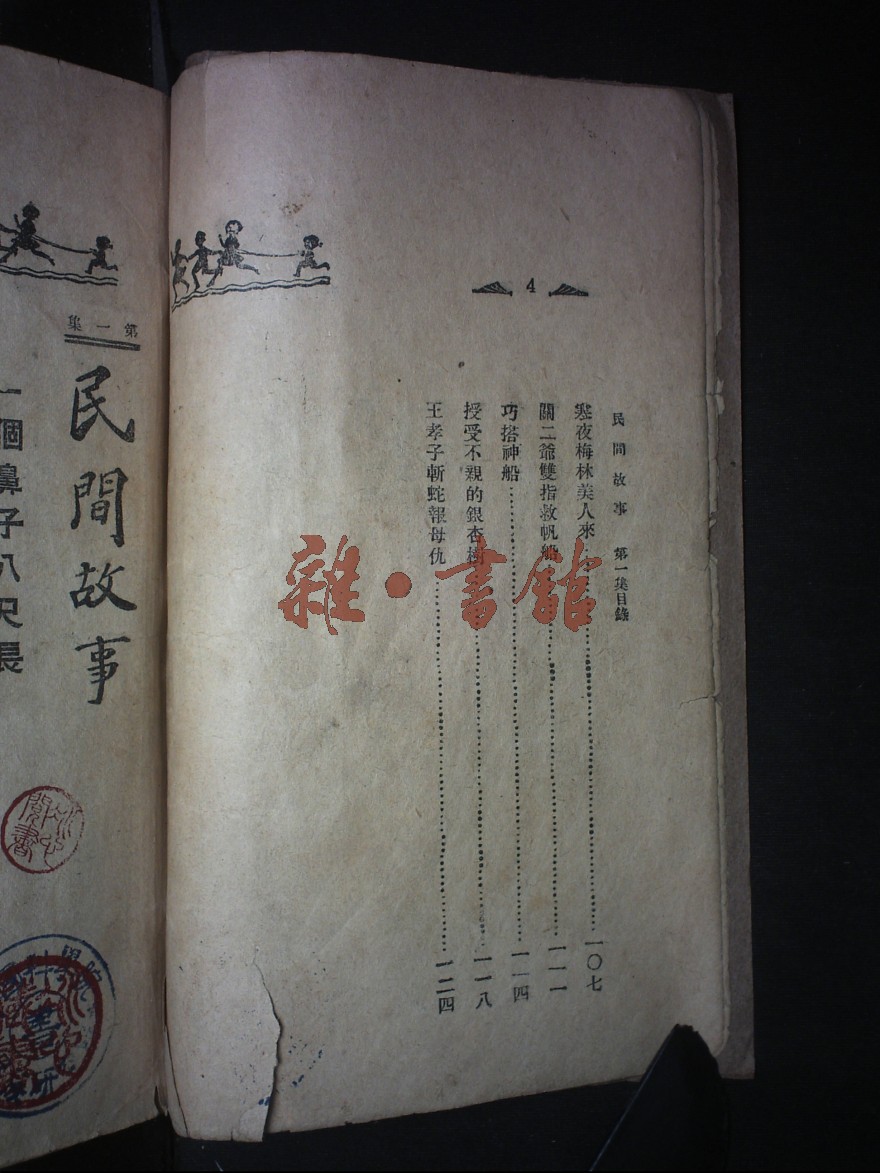 4
民間故事 第一集目錄
寒夜梅林美人來……一〇七
關二爺雙指救帆船……一一一
巧搭神船……一一四
授受不親的銀杏樹……一一八
王孝子斬蛇報母仇……一二四
第一集
民間故事
一個鼻子八尺長
雜·書館